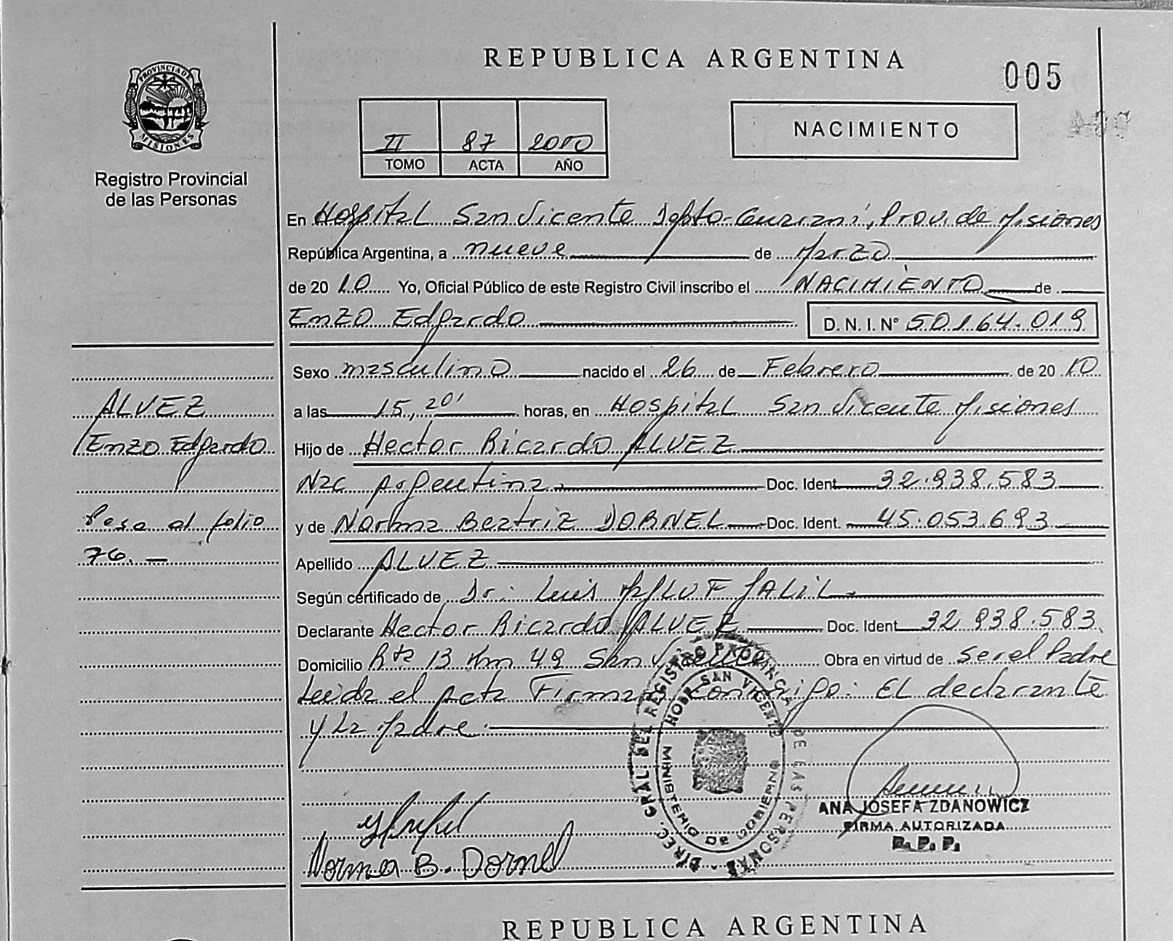 REPUBLICA ARGENTINA
005
PROVINCIA DE MISIONES
Registro Provincial
de las Personas
II 87 2010
TOMO ACTA AÑO
NACIMIENTO
En Hospital San Vicente Dpto. Guarani, Prov. de Misiones
República Argentina, a nueve de Marzo
de 20 10 Yo, Oficial Público de este Registro Civil inscribo el NACIMIENTO de
Enzo Edgardo D. N. I. N° 50.164.019
Sexo masculino nacido el 26 de Febrero de 20 10
ALVEZ
a las 15,20' horas, en Hospital San Vicente Misiones
Enzo Edgardo
Hijo de Hector Ricardo ALVEZ
Nac Argentina. Doc. Ident. 32.938.583
Pasa al folio
y de Norma Beatriz DORNEL Doc. Ident. 45.053.693
76.-
Apellido ALVEZ
Según certificado de Dr. Luis JALIL
Declarante Hector Ricardo ALVEZ Doc. Ident 32 938.583
Domicilio Rta 13 Km 49 San Vicente Obra en virtud de ser el Padre
Leida el acta Firman Conmigo: El declarante
y La padre.
DIREC. GRAL. DEL REGISTRO PROVINCIAL DE LAS PERSONAS
SAN VICENTE
MINISTERIO DE GOBIERNO
ANA JOSEFA ZDANOWICZ
FIRMA AUTORIZADA
R.P.P.
Norma B. Dornel
REPUBLICA ARGENTINA